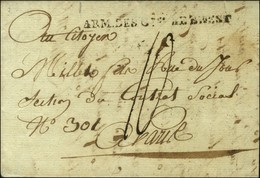 ARM. DES C^tes DE BREST
Au Citoyen
Millet fils Rue du Four
Section du Contrat Social
N° 301
Paris